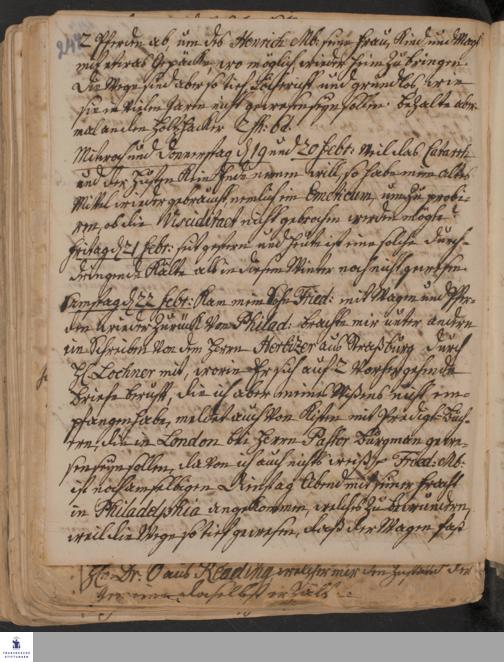 2 Pferden ab, um des Henrich Mb: seine Frau, Kind und Magd
mit etwas Gepäcke, wo möglich wieder heim zu bringen.
Die Wege sind aber so tief, löchericht und grundlos, wie
sie in vielen Jaren nicht gewesen seyn sollen. bezalte aber-
mal an den Holzhacker
Mitwoch und Donnerstag d 19 und 20 Febr: weil das Catarrh
und der Husten kein Ende nemen will, so habe mein altes
Mittel wieder gebraucht nemlich ein Emeticum, um zu probi-
ren, ob die Visciditaet nicht gebrochen werden mögte?
Freitag d 21 Febr: seit gestern und heute ist eine solche durch-
dringende Kälte als in diesem Winter noch nicht gewesen.
Samstag d 22 Febr: Kam mein Sohn Fried: mit Wagen und Pfer-
den wieder zurück von Philad: brachte mir unter andern
ein Schreiben von dem Herrn Herbizer aus Straßburg durch
H Lochner mit, worin Er sich auf 2 vorhergehende
Briefe beruft, die ich aber meines Wissens nicht em-
pfangen habe, meldet auch von Kisten mit Predigt-Büch-
ern, die in London bei Herrn Pastor Bürgman gewe-
sen seyn sollen, davon ich auch nichts weiß. Fried: Mb:
ist noch am selbigen Dienstag Abend mit seiner Fracht
in Philadelphia angekommen, welches zu bewundern,
weil die Wege so tief gewesen, daß der Wagen fast
aus Reading, welcher mir den Zustand der
daselbst erzält
FRANCKESCHE
STIFTUNGEN